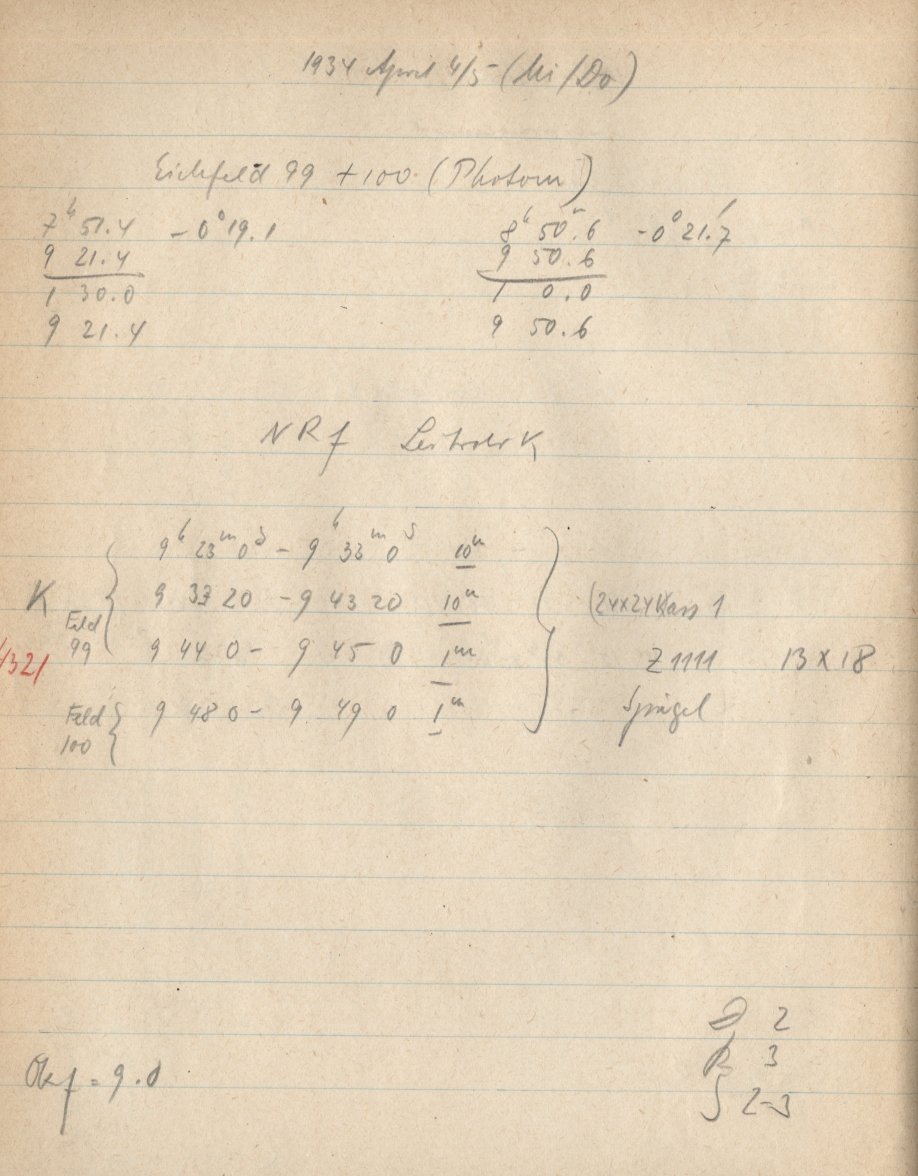 1934 April 4/5 (Mi/Do)
Eichfeld 99 + 100 (Photom)
7ʰ 51.4 -0° 19.1
9 21.4
1 30.0
9 21.4
8ʰ 50ᵐ.6 -0° 21.7
9 50.6
1 0.0
9 50.6
NRf K
K
4321
Feld 99
9ʰ 23ᵐ 0ˢ - 9ʰ 33ᵐ 0ˢ 10ᵐ
9 33 20 - 9 43 20 10ᵐ
9 44 0 - 9 45 0 1ᵐ
Feld 100
9 48 0 - 9 49 0 1ᵐ
(24x24 Kass 1
Z 1111 13 x 18
Spiegel
2
R 3
S 2-3
Okf = 9.0